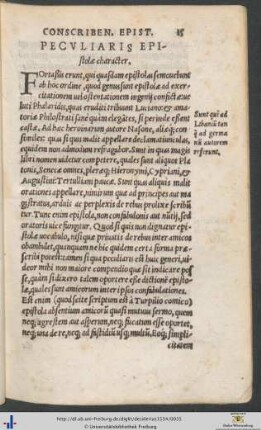 CONSCRIBEN. EPIST. 15
PECVLIARIS EPI-
stolæ character.
FOrtassis erunt, qui quasdam epistolas semouebunt
ab hoc ordine, quod genus sunt epistolæ ad exer-
citationem uel ostentationem ingenij confictæ, ue
luti Phalaridis, quas eruditi tribuunt Luciano, et ama
toriæ Philostrati sane quàm elegantes, si perinde essent
castæ, Ad hæc heroinarum autore Nasone, aliæq; con
similes: quas si qui malit appellare declamatiunculas,
equidem non admodum refragabor. Sunt in quas magis
libri nomen uidetur competere, quales sunt aliquot Pla
tonis, Senecæ omnes, pleræq; Hieronymi, Cypriani, et
Augustini: Tertulliani paucæ. Sunt quas aliquis malit
orationes appellare, nimirum quæ ad principes aut ma
gistratus, arduis ac perplexis de rebus prolixe scribun
tur. Tunc enim epistola, non confabulonis aut nuncij, sed
oratoris uice fungitur. Quod si quis non dignatur epi-
stolæ uocabulo, nisi quæ priuatis de rebus inter amicos
uel præ se
scribi posset: tamen si qua peculiaris est huic generi, ui-
deor mihi non maiore compendio quæ sit indicare pos
se, quàm si dixero talem oportere esse dictionē episto-
læ, quales sunt amicorum inter ipsos confabulationes.
Est enim (quod scite scriptum est à Turpilio comico)
epistola absentium amicorū quasi mutuus sermo, quem
neq; agrestem aut asperum, neq; fucatum esse oportet,
neq; una de re, neq; ad fastidiū usq; multū. Eoq; simpli-
citatem
Sunt qui ad
Libanii tan
q̄ ad germa
nū autorem
referunt.
http://dl.ub.uni-freiburg.de/diglit/
© Universitätsbibliothek Freiburg